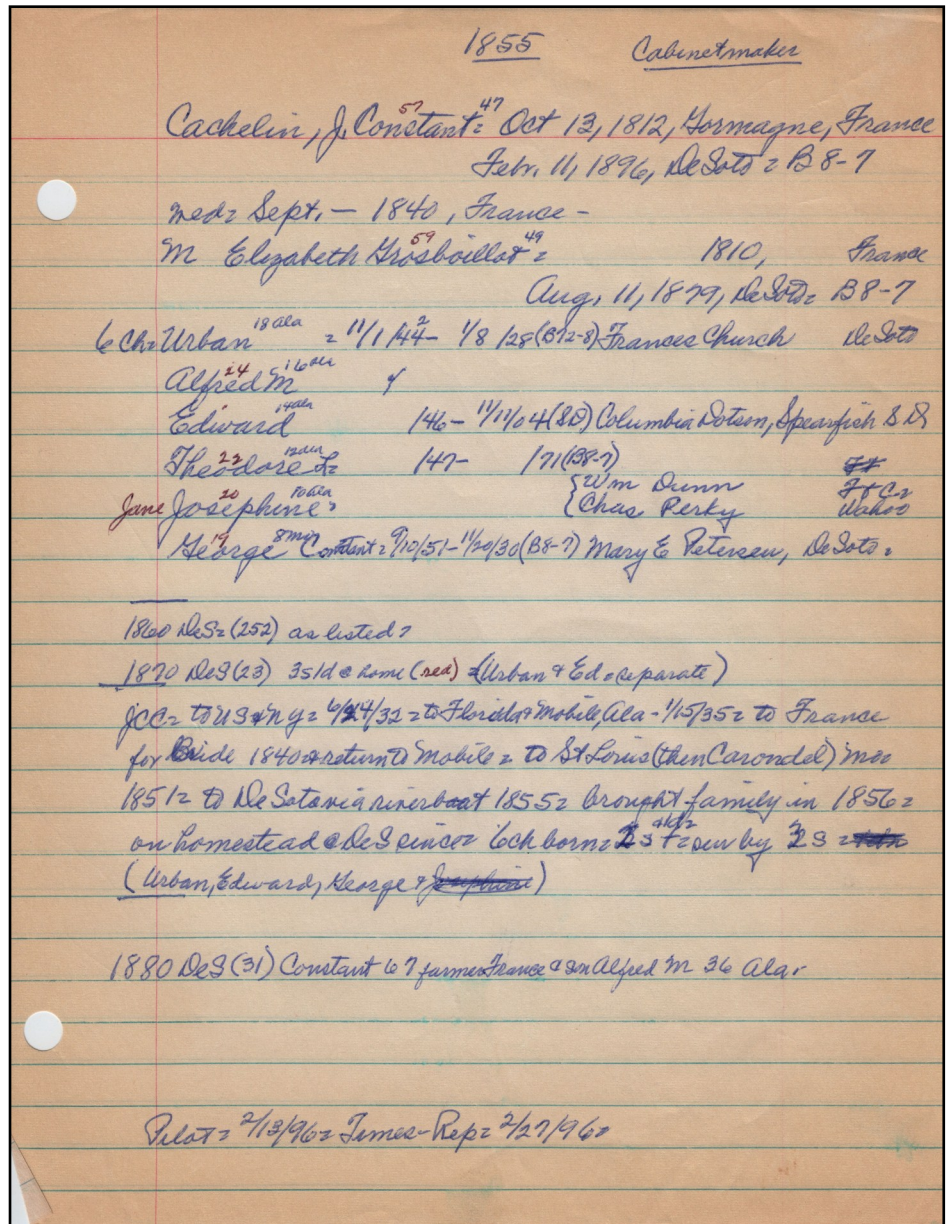 1855 Cabinetmaker
Cachelin, J. Constant 57 = 47 Oct 13, 1812, Gormagne, France
Febr. 11, 1896, DeSoto = B8-7
med = Sept. — 1840, France -
M Elizabeth Grosboillot 59 49 = 1810, France
Aug. 11, 1879, DeSoto = B8-7
6 Ch = Urban 18 Ala = 11/1/42 - 1/8/28 (B12-8) Frances Church DeSoto
Alfred M 24 16 Ala
Edward 14 Ala 146 - 11/11/04 (SD) Columbia Dotson, Spearfish S D
Theodore L 22 12 Ala = 147- 171 (B8-7)
Jane Josephine 20 10 Ala = { Wm Dunn F+Cr
{ Chas Perky Wahoo
George 19 8 Mo Constant = 9/10/51 - 11/20/30 (B8-7) Mary E Petersen, DeSoto =
1860 DeS = (252) as listed =
1870 DeS (23) 3s1d @ home (red) = (Urban & Ed = separate)
JCC = to US @ NY = 6/24/32 = to Florida & Mobile, Ala - 1/15/35 = to France
for Bride 1840 & return to Mobile = to St Louis (then Carondel) Mo =
1851 = to DeSoto via riverboat 1855 = brought family in 1856 =
on homestead @ DeS since = 6ch born = sur by 3 S =
(Urban, Edward, George & Josephine)
1880 DeS (31) Constant 67 farmer France & son Alfred M 36 Ala.
Pilot = 2/13/96 = Times-Rep = 2/27/96 =